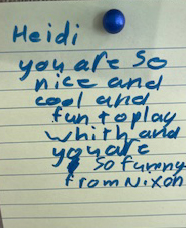 Heidi
you are so
nice and
cool and
fun to play
whith and
you are
so funny
from Nixon